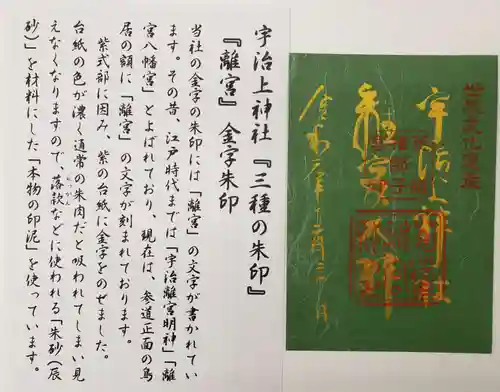 世界文化遺産
宇治上神社
宇治上神社『三種の朱印』
『離宮』金字朱印
当社の金字の朱印には「離宮」の文字が書かれてい
ます。その昔、江戸時代までは「宇治離宮明神」「離
宮八幡宮」とよばれており、現在は、参道正面の鳥
居の額に「離宮」の文字が刻まれております。
紫式部に因み、紫の台紙に金字をのせました。
台紙の色が濃く通常の朱肉だと吸われてしまい見
えなくなりますので、落款などに使われる「朱砂(辰
砂)」を材料にした「本物の印泥」を使っています。